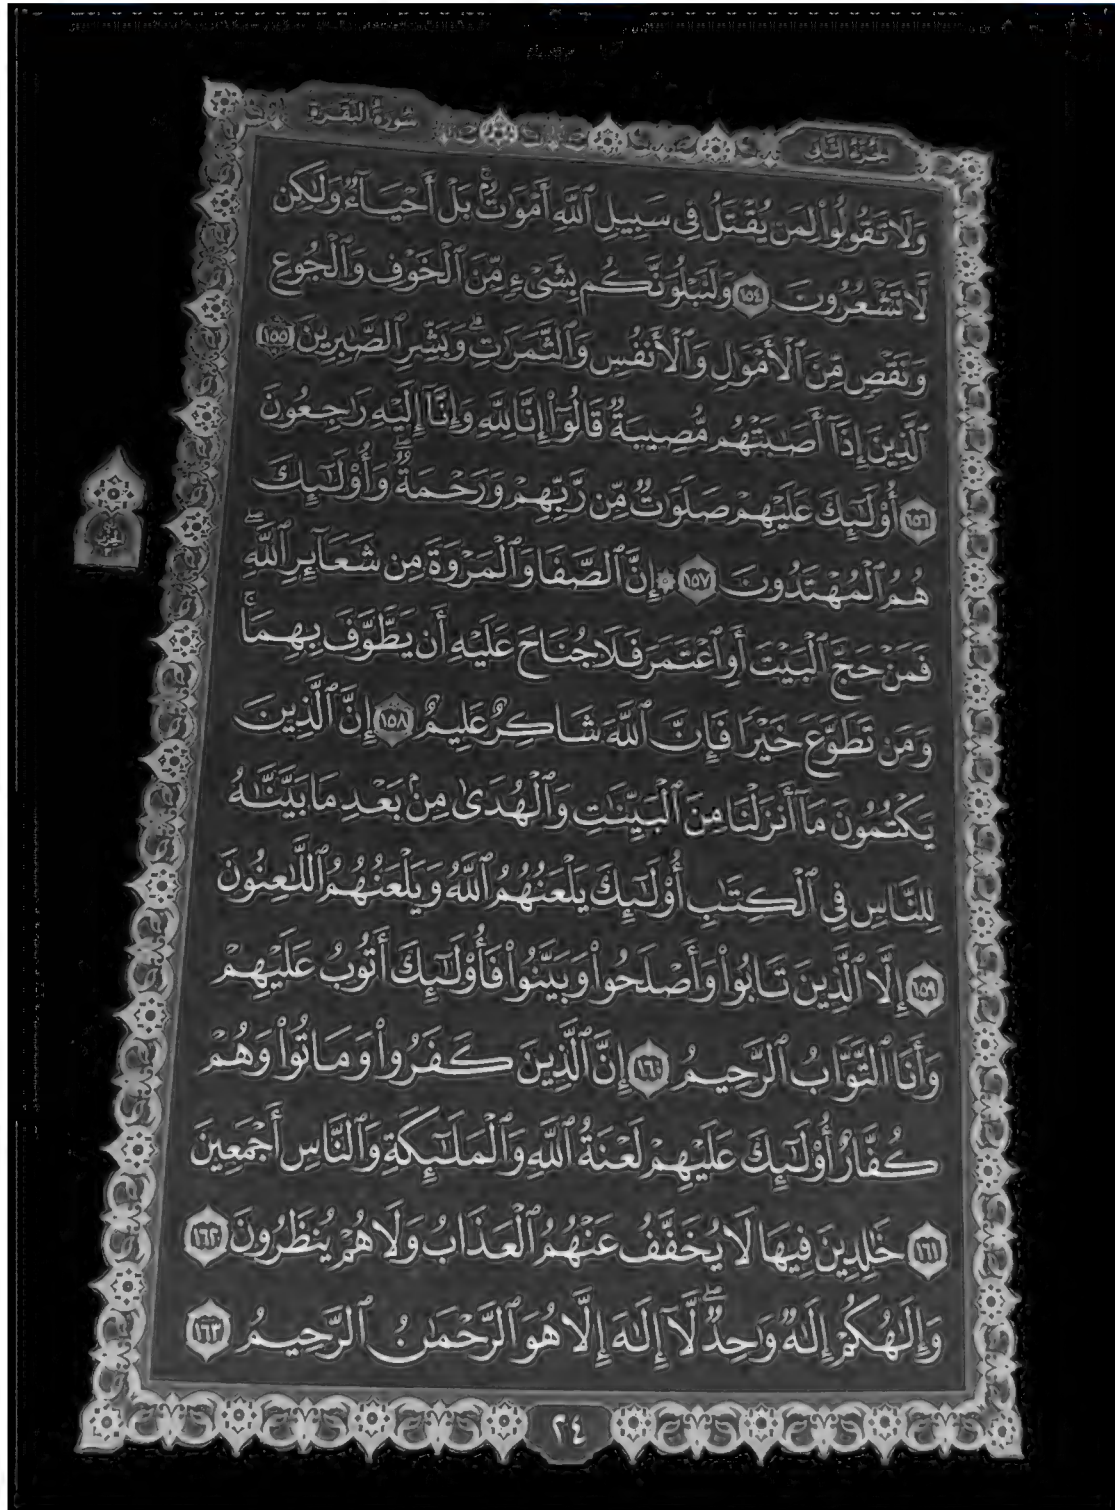 الجزء الثاني
سورة البقرة
وَلَا تَقُولُوا۟ لِمَن يُقْتَلُ فِى سَبِيلِ ٱللَّهِ أَمْوَٰتٌۢ ۚ بَلْ أَحْيَآءٌ وَلَٰكِن
لَّا تَشْعُرُونَ ١٥٤ وَلَنَبْلُوَنَّكُم بِشَىْءٍ مِّنَ ٱلْخَوْفِ وَٱلْجُوعِ
وَنَقْصٍ مِّنَ ٱلْأَمْوَٰلِ وَٱلْأَنفُسِ وَٱلثَّمَرَٰتِ ۗ وَبَشِّرِ ٱلصَّٰبِرِينَ ١٥٥
ٱلَّذِينَ إِذَآ أَصَٰبَتْهُم مُّصِيبَةٌ قَالُوٓا۟ إِنَّا لِلَّهِ وَإِنَّآ إِلَيْهِ رَٰجِعُونَ
١٥٦ أُو۟لَٰٓئِكَ عَلَيْهِمْ صَلَوَٰتٌ مِّن رَّبِّهِمْ وَرَحْمَةٌ ۖ وَأُو۟لَٰٓئِكَ
هُمُ ٱلْمُهْتَدُونَ ١٥٧ ۞ إِنَّ ٱلصَّفَا وَٱلْمَرْوَةَ مِن شَعَآئِرِ ٱللَّهِ ۖ
فَمَنْ حَجَّ ٱلْبَيْتَ أَوِ ٱعْتَمَرَ فَلَا جُنَاحَ عَلَيْهِ أَن يَطَّوَّفَ بِهِمَا ۚ
وَمَن تَطَوَّعَ خَيْرًا فَإِنَّ ٱللَّهَ شَاكِرٌ عَلِيمٌ ١٥٨ إِنَّ ٱلَّذِينَ
يَكْتُمُونَ مَآ أَنزَلْنَا مِنَ ٱلْبَيِّنَٰتِ وَٱلْهُدَىٰ مِنۢ بَعْدِ مَا بَيَّنَّٰهُ
لِلنَّاسِ فِى ٱلْكِتَٰبِ أُو۟لَٰٓئِكَ يَلْعَنُهُمُ ٱللَّهُ وَيَلْعَنُهُمُ ٱللَّٰعِنُونَ
١٥٩ إِلَّا ٱلَّذِينَ تَابُوا۟ وَأَصْلَحُوا۟ وَبَيَّنُوا۟ فَأُو۟لَٰٓئِكَ أَتُوبُ عَلَيْهِمْ
وَأَنَا ٱلتَّوَّابُ ٱلرَّحِيمُ ١٦٠ إِنَّ ٱلَّذِينَ كَفَرُوا۟ وَمَاتُوا۟ وَهُمْ
كُفَّارٌ أُو۟لَٰٓئِكَ عَلَيْهِمْ لَعْنَةُ ٱللَّهِ وَٱلْمَلَٰٓئِكَةِ وَٱلنَّاسِ أَجْمَعِينَ
١٦١ خَٰلِدِينَ فِيهَا لَا يُخَفَّفُ عَنْهُمُ ٱلْعَذَابُ وَلَا هُمْ يُنظَرُونَ ١٦٢
وَإِلَٰهُكُمْ إِلَٰهٌ وَٰحِدٌ ۖ لَّآ إِلَٰهَ إِلَّا هُوَ ٱلرَّحْمَٰنُ ٱلرَّحِيمُ ١٦٣
٢٤